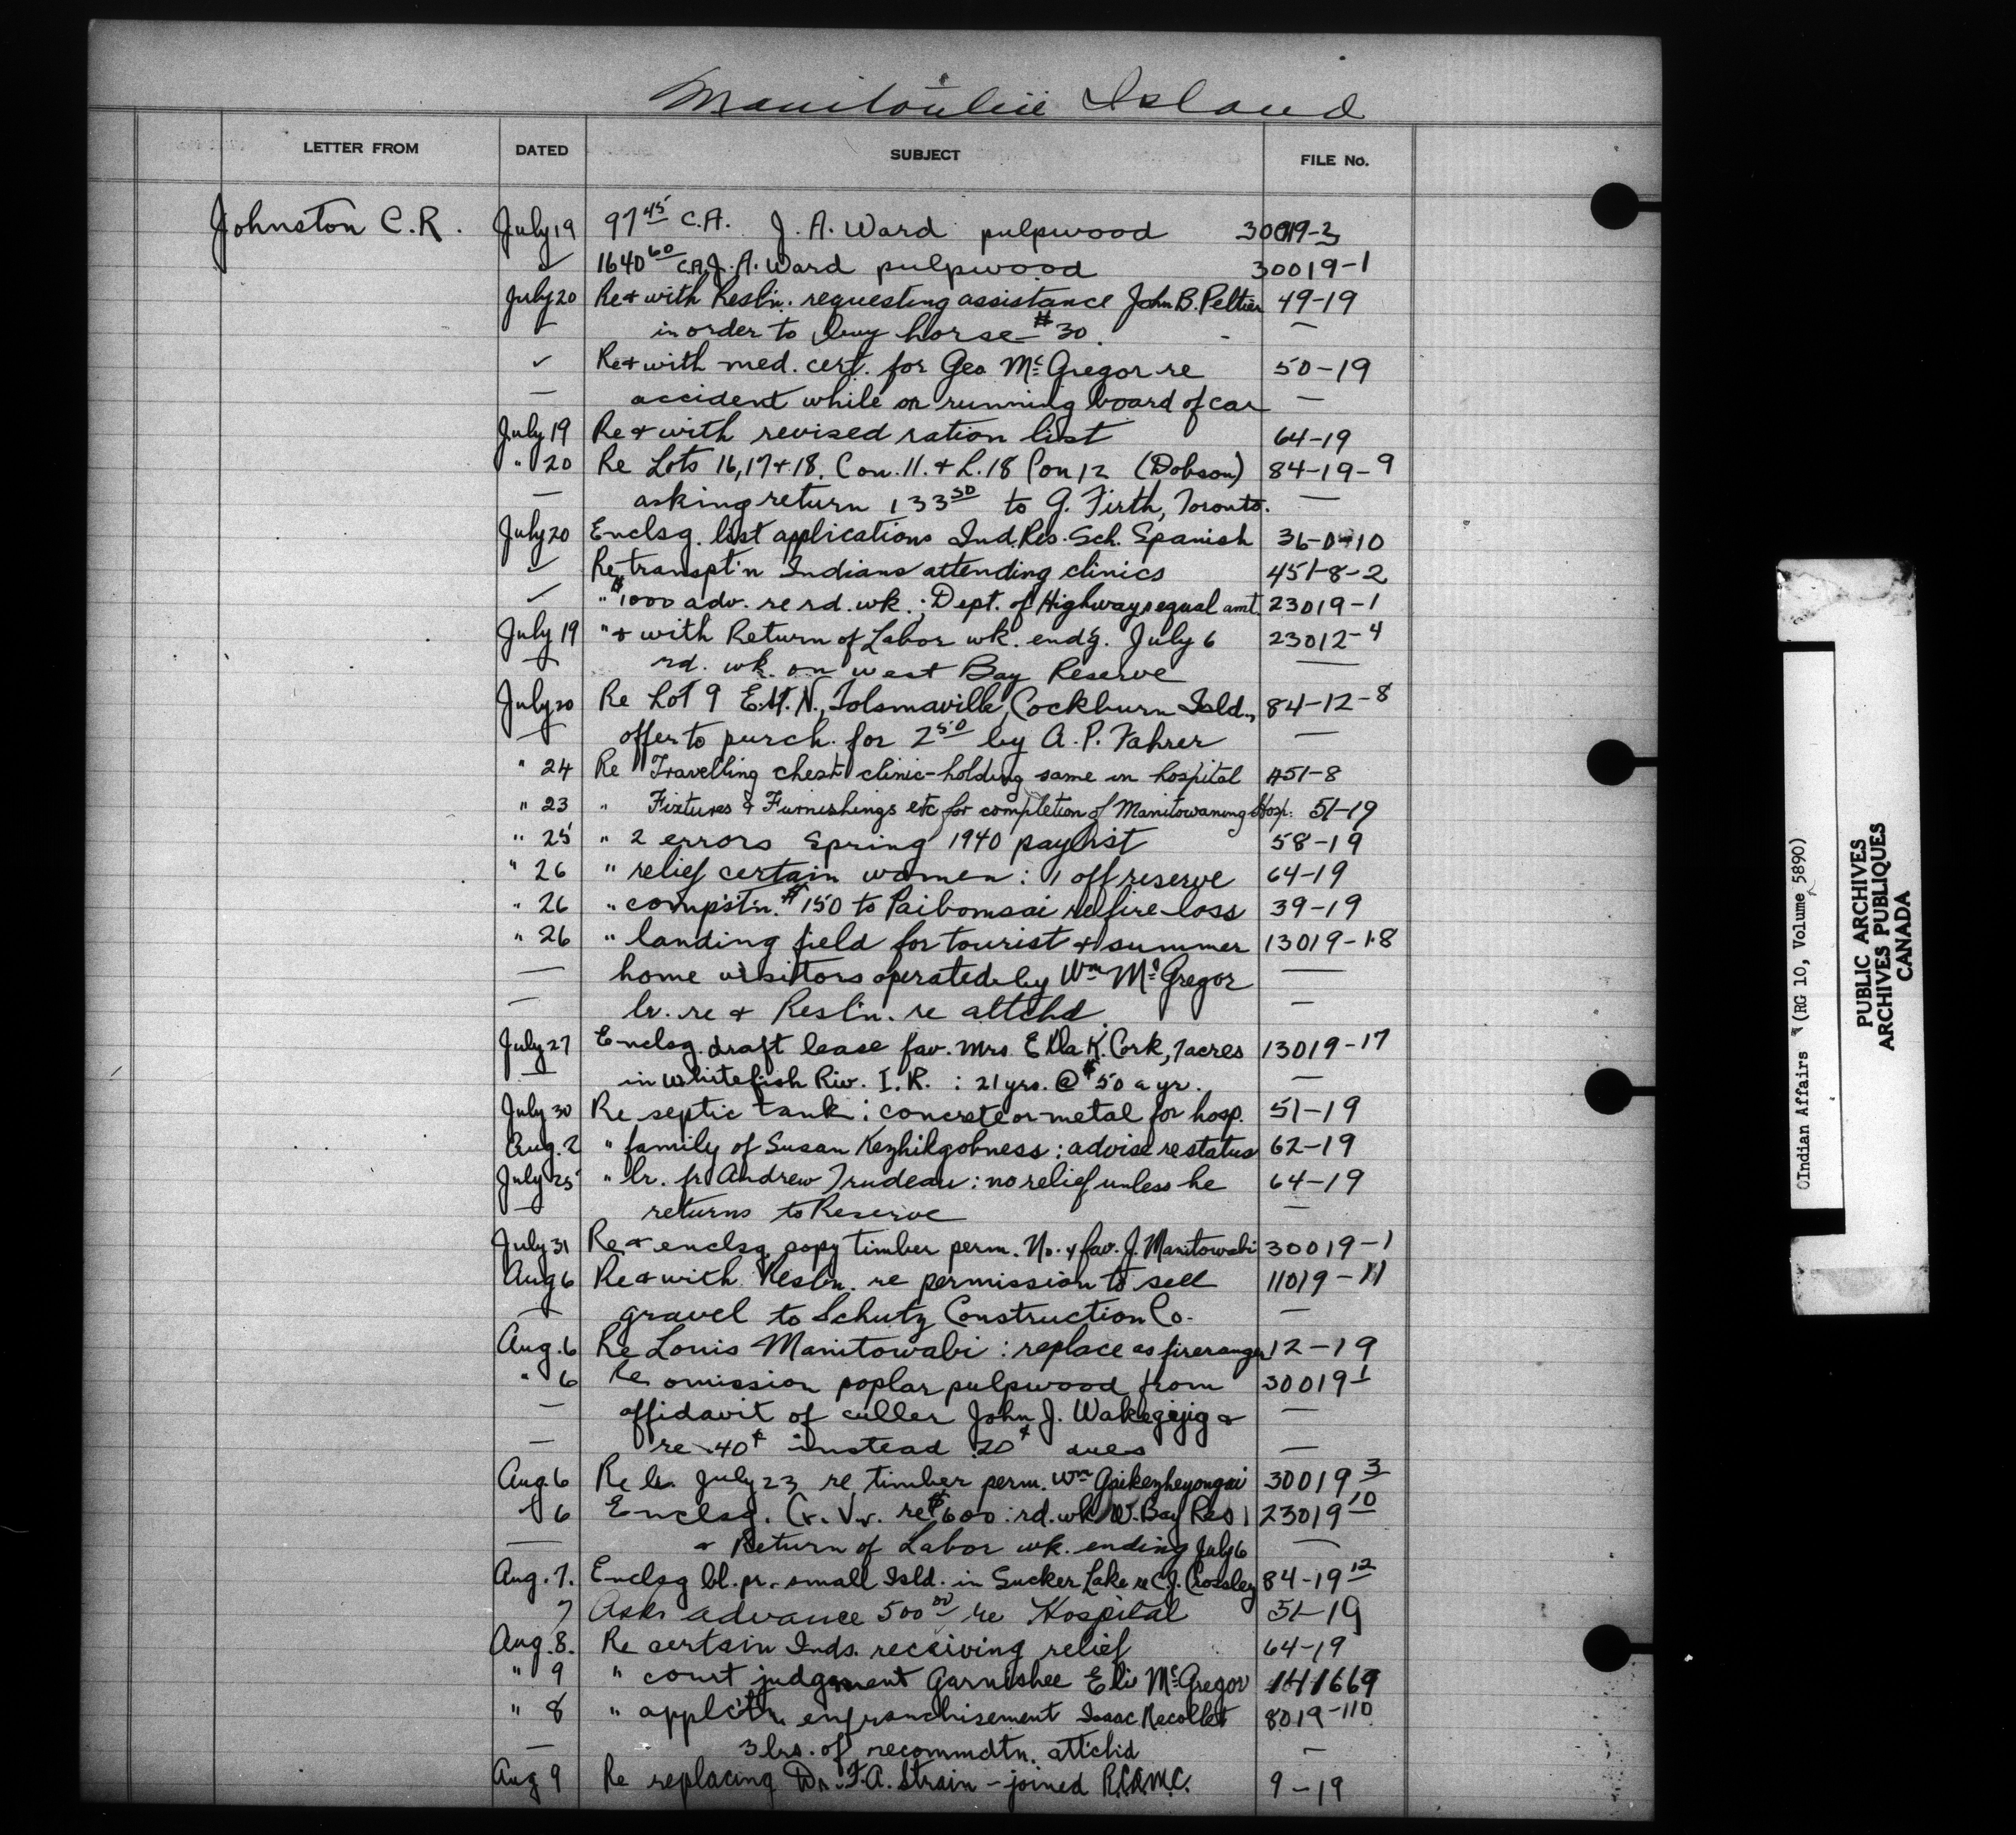 Manitoulin Island
LETTER FROM DATED SUBJECT FILE No.
Johnston C.R. July 19 97 45 C.A. J. A. Ward pulpwood 30019-3
✓ 1640 60 C.A. J. A. Ward pulpwood 30019-1
July 20 Re & with Resl'n. requesting assistance John B. Peltier 49-19
— in order to buy horse - $30. —
✓ Re & with med. cert. for Geo McGregor re 50-19
— accident while on running board of car —
July 19 Re & with revised ration list 64-19
" 20 Re Lots 16, 17 & 18, Con. 11. & L. 18 Con 12 (Dobson) 84-19-9
— asking return 133 50 to G. Firth, Toronto. —
July 20 Enclsg. list applications Ind. Res. Sch. Spanish 36-0-10
✓ Re transpt'n Indians attending clinics 451-8-2
✓ " $1000 adv. re rd. wk.; Dept. of Highways equal amt. 23019-1
July 19 " & with Return of Labor wk. endg. July 6 23012-4
— rd. wk. on West Bay Reserve —
July 20 Re Lot 9 E.H.N., Tolsmaville, Cockburn Isld., 84-12-8
— offer to purch. for 2 50 by A. P. Fahrer —
" 24 Re Travelling chest clinic - holding same in hospital 451-8
" 23 " Fixtures & Furnishings etc for completion of Manitowaning Hosp. 51-19
" 25 " 2 errors Spring 1940 paylist 58-19
" 26 " relief certain women: 1 off reserve 64-19
" 26 " comps'tn. $150 to Paibomsai re fire-loss 39-19
" 26 " landing field for tourist & summer 13019-18
— home visitors operated by Wm McGregor —
— lr. re & Resl'n. re attchd. —
July 27 Enclsg. draft lease fav. Mrs Ella K. Cork, 7 acres 13019-17
— in Whitefish Riv. I. R.: 21 yrs. @ $50 a yr. —
July 30 Re septic tank: concrete or metal for hosp. 51-19
Aug. 2 " family of Susan Kezhikgobness: advise re status 62-19
July 25 " lr. fr. Andrew Trudeau: no relief unless he 64-19
— returns to Reserve —
July 31 Re & enclsg. copy timber perm. No. 4 fav. J. Manitowabi 30019-1
Aug 6 Re & with Resl'n. re permission to sell 11019-11
— gravel to Schutz Construction Co. —
Aug. 6 Re Louis Manitowabi: replace as fireranger 12-19
" 6 Re omission poplar pulpwood from 30019 1
— affidavit of culler John J. Wakegijig & —
— re .40¢ instead .20¢ dues —
Aug. 6 Re lr. July 23 re timber perm. Wm Gaikezheyongai 30019 3
" 6 Enclsg. Cr. Vr. re $600: rd. wk. W. Bay Res 23019 10
— & Return of Labor wk. ending July 6 —
Aug. 7. Enclsg bl. pr. small Isld. in Sucker Lake re C. J. Crossley 84-19 12
7 Asks advance 500 00 re Hospital 51-19
Aug. 8. Re certain Inds. receiving relief 64-19
" 9 " court judgement Garnishee Eli McGregor 141669
" 8 " applc't'n. enfranchisement Isaac Recollet 8019-110
— 3 lrs. of recommdtn. attchd —
Aug 9 Re replacing Dr. F. A. Strain - joined R.C.A.M.C. 9-19
(Indian Affairs (RG 10, Volume 5890)
PUBLIC ARCHIVES
ARCHIVES PUBLIQUES
CANADA